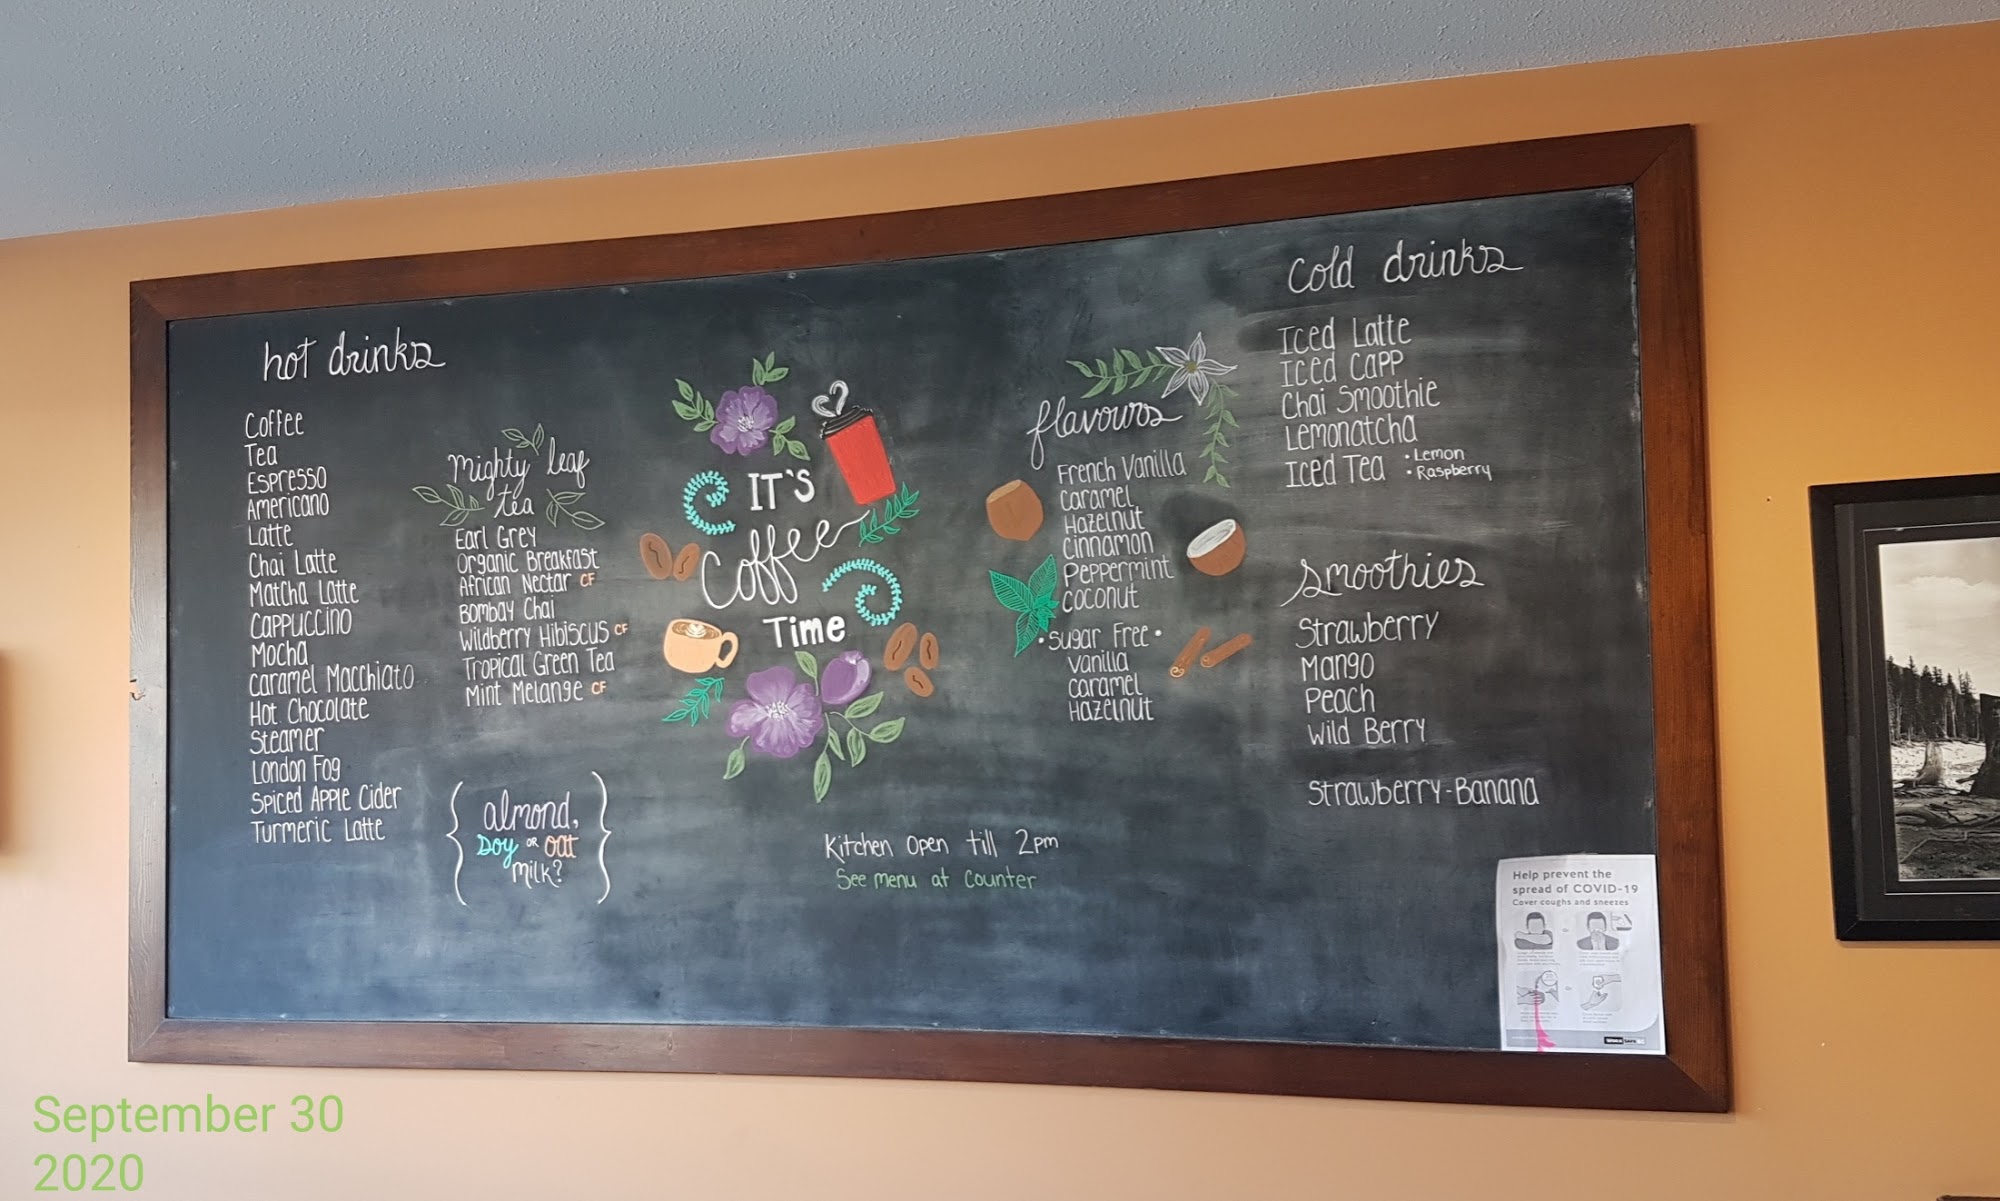 hot drinks
Coffee
Tea
Espresso
Americano
Latte
Chai Latte
Matcha Latte
Cappuccino
Mocha
Caramel Macchiato
Hot Chocolate
Steamer
London Fog
Spiced Apple Cider
Turmeric Latte
mighty leaf
tea
Earl Grey
Organic Breakfast
African Nectar CF
Bombay Chai
Wildberry Hibiscus CF
Tropical Green Tea
Mint Melange CF
almond,
soy or oat
milk?
IT'S
Coffee
Time
Kitchen open till 2pm
See menu at counter
flavours
French Vanilla
Caramel
Hazelnut
Cinnamon
Peppermint
Coconut
•Sugar Free•
Vanilla
Caramel
Hazelnut
Cold drinks
Iced Latte
Iced Capp
Chai Smoothie
Lemonatcha
Iced Tea •Lemon
•Raspberry
Smoothies
Strawberry
Mango
Peach
Wild Berry
Strawberry-Banana
Help prevent the
spread of COVID-19
Cover coughs and sneezes
September 30
2020